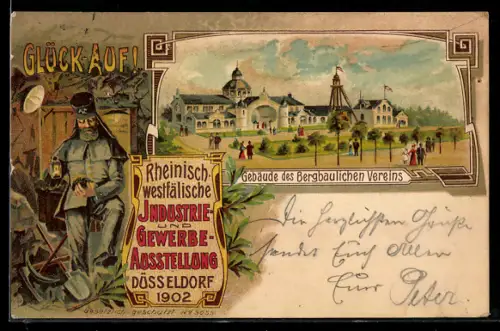 GLÜCK-AUF!
Gebäude des Bergbaulichen Vereins
Rheinisch-
westfälische
INDUSTRIE-
UND
GEWERBE-
AUSSTELLUNG
DÜSSELDORF
1902
Die herzlichsten Grüße
sendet Euch Allen
Euer Peter.